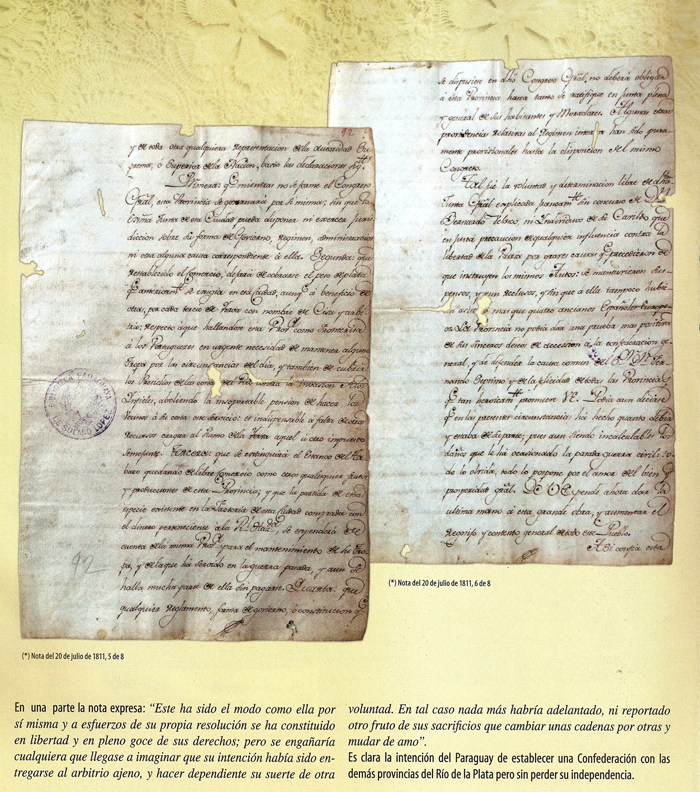 92.
y de esta otra qualquiera representacion de la autoridad Su-
prema, ó Superior de la Nacion, bajo las declaraciones sig.tes
Primera: q.e mientras no se forme el Congreso
Gral, esta Provincia se governará por si misma, sin que la
Exma Junta de esa Ciudad pueda disponer, ni exercer juris-
diccion sobre su forma de Govierno, regimen, administracion
ni otra alguna causa correspondiente á ella. Segunda: que
restablecido el comercio, dejará de cobrarse el peso de plata
q.e anteriorm.te se exigia en esa Ciudad, aunq.e á beneficio de
otra, por cada tercio de Yerva con nombre de Sisa y arbi-
trio; respecto á que hallandose esta Prov.a como fronteriza
á los Portugueses en urgente necesidad de mantener alguna
tropa por las circunstancias del dia, y tambien de cubrir
los Presidios de las costas del Rio contra la invasion de los
Infieles, aboliendo la insoportable pension de hacer los
Vecinos á su costa este servicio; es indispensable á falta de otros
recursos cargar al ramo de la Yerva aquel ú otro impuesto
semejante. Tercera: que se extinguirá el Estanco del Ta-
baco quedando de libre comercio como otros qualesquiera frutos
y producciones de esta Provincia; y que la partida de esta
especie existente en la Factoria de esta Ciudad comprada con
el dinero perteneciente á la R.l Haz.da, se expenderá de
cuenta de la misma Prov.a para el mantenimiento de su Tro-
pa, y de la que ha servido en la guerra pasada, y aun se
halla mucha parte de ella sin pagarse. Quarta: que
qualquier reglamento, forma de govierno, ó constitucion q.e
REPUBLICA PARAGUAYA
92
(*) Nota del 20 de julio de 1811, 5 de 8
se dispusiere en dho Congreso Gral, no deberá obligar
á esta Provincia hasta tanto se ratifique en Junta plena
y general de sus habitantes y Moradores. Algunas otras
providencias relativas al regimen interior han sido pura-
mente provisionales hasta la disposicion del mismo
Congreso.
Tal fué la voluntad y determinacion libre de dha
Junta Gral explicada francam.te sin concurso de D.n
Bernardo Velasco, ni Individuos de su Cavildo, que
en justa precaucion de qualquier influencia contra la
libertad de la Patria por graves causas q.e precedieron de
que instruyen los mismos Autos, se mantuvieron sus-
pensos, y aun reclusos, y sin que á ella tampoco hubie-
mas que quatro ancianos Españoles Europe-
os. La Provincia no podia dar una prueba mas positiva
de sus sinceros deseos de accesion á la confederacion ge-
neral, y de defender la causa comun del S.or D.n Fer-
nando Septimo y de la felicidad de todas las Provincias
q.e tan heroicam.te promueve V.E. Podia aun decirse
q.e en las presentes circunstancias há hecho quanto debia
y estaba de su parte; pues aun siendo incalculables los
daños que le ha ocasionado la pasada guerra civil, to-
do lo olvida, todo lo pospone por el amor del bien y
prosperidad gral. De V.E. pende ahora dar la
ultima mano á esta grande obra, y aumentar el
regocijo y contento general de todo este Pueblo.
Asi confia esta
(*) Nota del 20 de julio de 1811, 6 de 8
En una parte la nota expresa: “Este ha sido el modo como ella por
sí misma y a esfuerzos de su propia resolución se ha constituido
en libertad y en pleno goce de sus derechos; pero se engañaría
cualquiera que llegase a imaginar que su intención había sido en-
tregarse al arbitrio ajeno, y hacer dependiente su suerte de otra
voluntad. En tal caso nada más habría adelantado, ni reportado
otro fruto de sus sacrificios que cambiar unas cadenas por otras y
mudar de amo”.
Es clara la intención del Paraguay de establecer una Confederación con las
demás provincias del Río de la Plata pero sin perder su independencia.